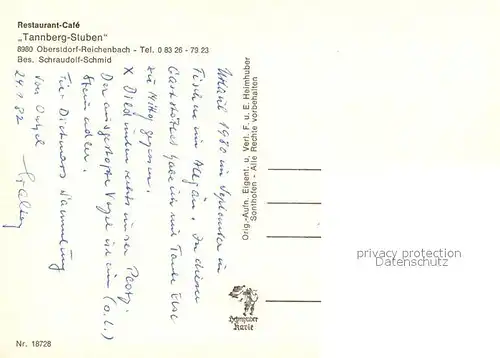 Restaurant-Café
„Tannberg-Stuben"
8980 Oberstdorf-Reichenbach - Tel. 0 83 26 - 79 23
Bes. Schraudolf-Schmid
Urlaub 1980 im September in
Fischen im Allgäu. In dieser
Gaststätte habe ich mit Tante Else
zu Mittag gegessen.
X Bild unten rechts unser Platz.
Der ausgestopfte Vogel ist ein (o. l.)
Für Dietmars Sammlung
von Onkel
24.1.82
Orig.-Aufn. Eigent. u. Verl. F. u. E. Heimhuber
Sonthofen - Alle Rechte vorbehalten
privacy protection
Datenschutz
Heimhuber
Karte
Nr. 18728